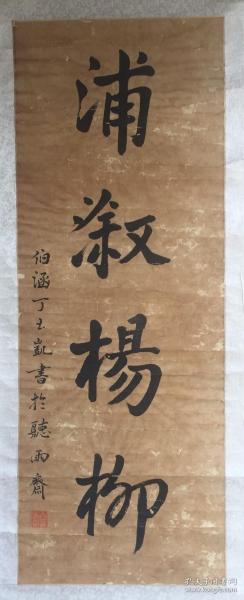 浦溆楊柳
伯涵丁玉凱書於聽雨齋